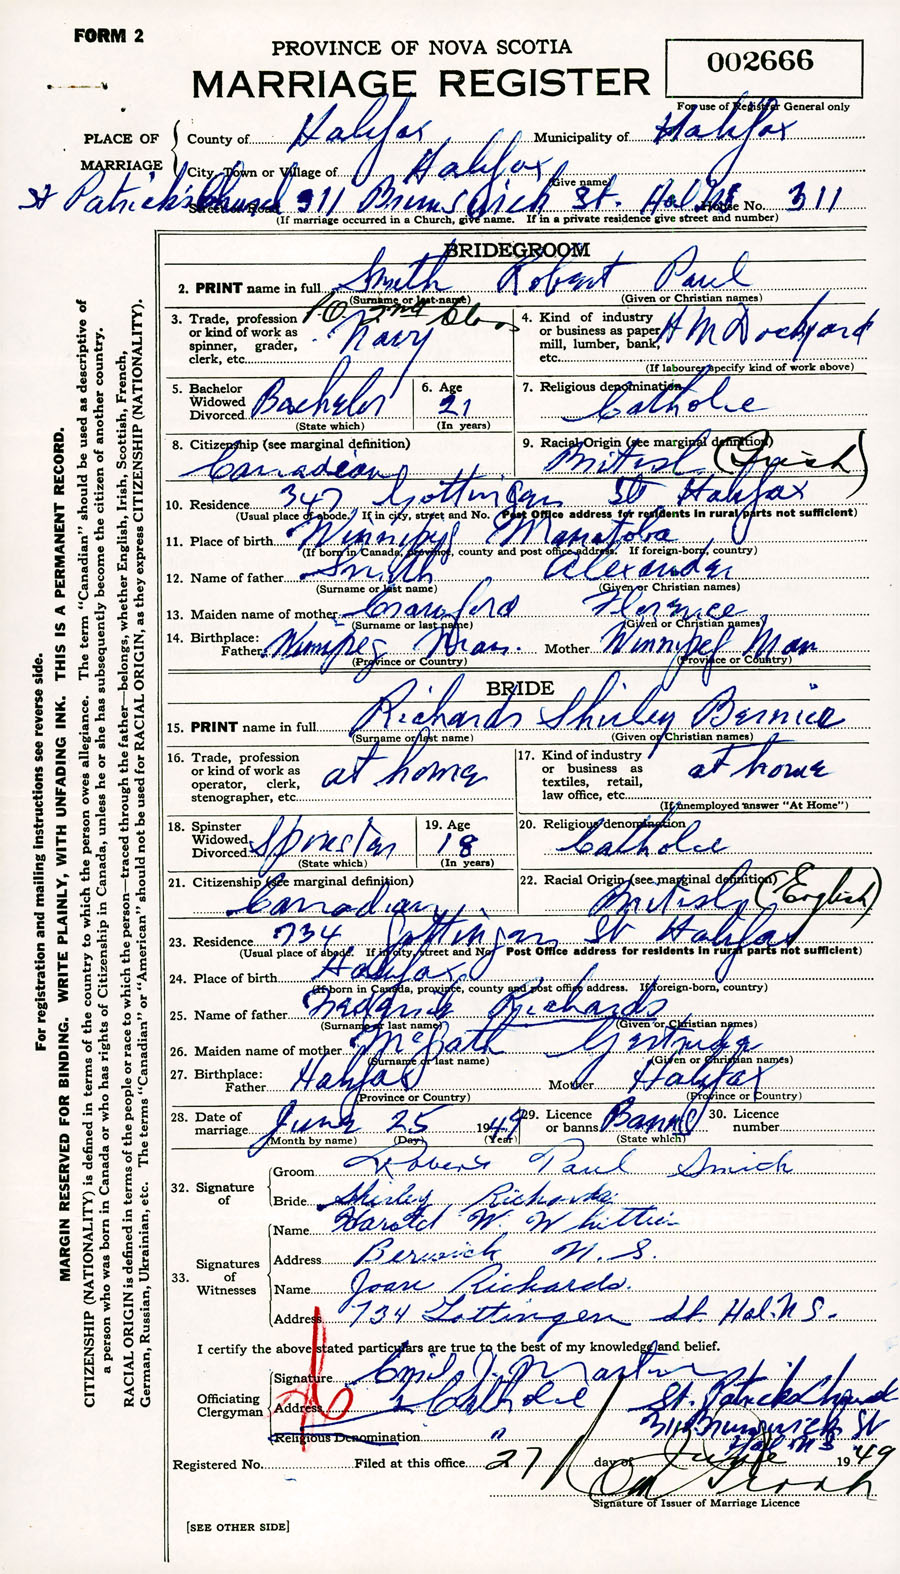 FORM 2
PROVINCE OF NOVA SCOTIA
MARRIAGE REGISTER
002666
For use of Registrar General only
PLACE OF MARRIAGE
County of Halifax Municipality of Halifax
City, Town or Village of Halifax
(Give name)
St Patrick's Church 311 Brunswick St. Halifax House No. 311
Street or Road
(If marriage occurred in a Church, give name. If in a private residence give street and number)
BRIDEGROOM
2. PRINT name in full Smith Robert Paul
(Surname or last name) (Given or Christian names)
3. Trade, profession or kind of work as spinner, grader, clerk, etc. P.O. 2nd Class Navy
4. Kind of industry or business as paper mill, lumber, bank, etc. H M Dockyard
(If labourer specify kind of work above)
5. Bachelor Widowed Divorced Bachelor
(State which)
6. Age 21
(In years)
7. Religious denomination Catholic
8. Citizenship (see marginal definition) Canadian
9. Racial Origin (see marginal definition) British (Irish)
10. Residence 347 Gottingen St Halifax
(Usual place of abode. If in city, street and No. Post Office address for residents in rural parts not sufficient)
11. Place of birth Winnipeg Manatoba
(If born in Canada, province, county and post office address. If foreign-born, country)
12. Name of father Smith Alexander
(Surname or last name) (Given or Christian names)
13. Maiden name of mother Crawford Florence
(Surname or last name) (Given or Christian names)
14. Birthplace: Father Winnipeg Man. Mother Winnipeg Man
(Province or Country) (Province or Country)
BRIDE
15. PRINT name in full Richards Shirley Bernice
(Surname or last name) (Given or Christian names)
16. Trade, profession or kind of work as operator, clerk, stenographer, etc. at home
17. Kind of industry or business as textiles, retail, law office, etc. at home
(If unemployed answer "At Home")
18. Spinster Widowed Divorced Spinster
(State which)
19. Age 18
(In years)
20. Religious denomination Catholic
21. Citizenship (see marginal definition) Canadian
22. Racial Origin (see marginal definition) British (English)
23. Residence 734 Gottingen St Halifax
(Usual place of abode. If in city, street and No. Post Office address for residents in rural parts not sufficient)
24. Place of birth Halifax
(If born in Canada, province, county and post office address. If foreign-born, country)
25. Name of father Frederick Richards
(Surname or last name) (Given or Christian names)
26. Maiden name of mother McGrath Gertrude
(Surname or last name) (Given or Christian names)
27. Birthplace: Father Halifax Mother Halifax
(Province or Country) (Province or Country)
28. Date of marriage June 25 1949
(Month by name) (Day) (Year)
29. Licence or banns Banns
(State which)
30. Licence number
32. Signature of
Groom Robert Paul Smith
Bride Shirley Richards
33. Signatures of Witnesses
Name Harold W. Whittier
Address Berwick N.S.
Name Joan Richards.
Address 734 Gottingen St. Hal. N S.
I certify the above stated particulars are true to the best of my knowledge and belief.
Officiating Clergyman
Signature Emil J. Martin
Address Catholic St. Patricks Church
311 Brunswick St
Hal N S
Religious Denomination "
Registered No. Filed at this office 27 day of June 1949
Signature of Issuer of Marriage Licence
[SEE OTHER SIDE]
For registration and mailing instructions see reverse side.
MARGIN RESERVED FOR BINDING. WRITE PLAINLY, WITH UNFADING INK. THIS IS A PERMANENT RECORD.
CITIZENSHIP (NATIONALITY) is defined in terms of the country to which the person owes allegiance. The term "Canadian" should be used as descriptive of
a person who was born in Canada or who has rights of Citizenship in Canada, unless he or she has subsequently become the citizen of another country.
RACIAL ORIGIN is defined in terms of the people or race to which the person—traced through the father—belongs, whether English, Irish, Scottish, French,
German, Russian, Ukrainian, etc. The terms "Canadian" or "American" should not be used for RACIAL ORIGIN, as they express CITIZENSHIP (NATIONALITY).